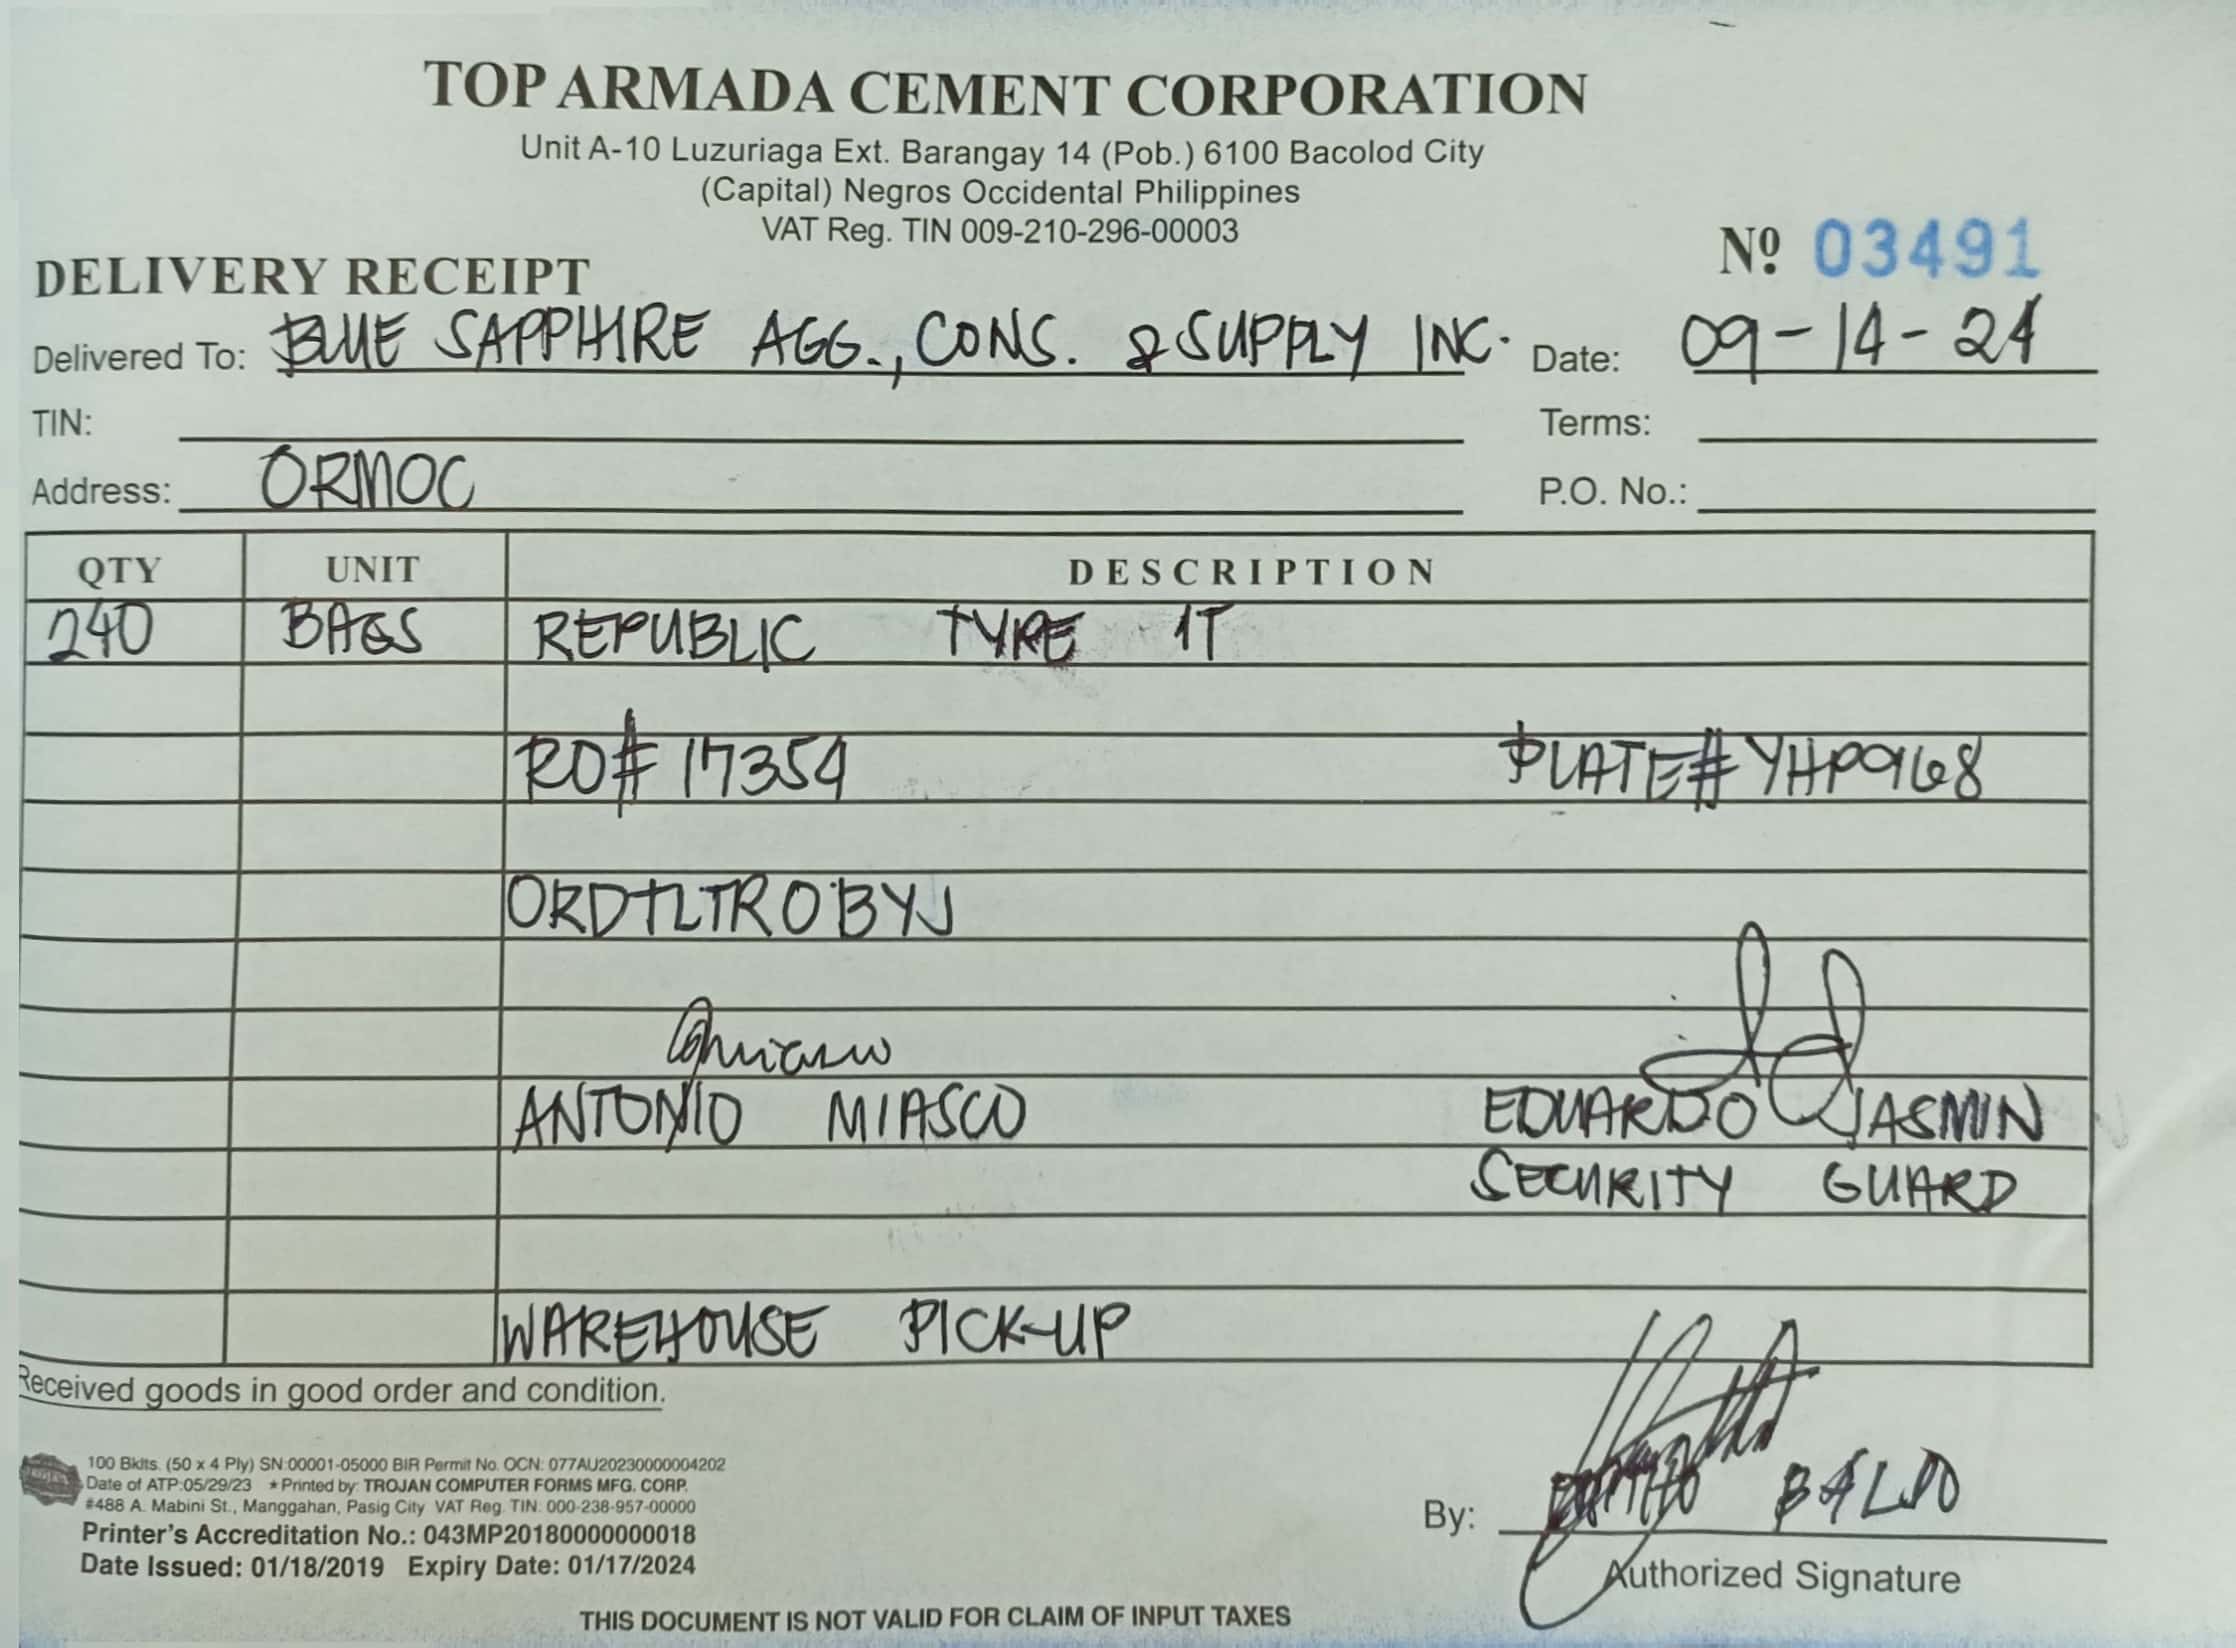 TOP ARMADA CEMENT CORPORATION
Unit A-10 Luzuriaga Ext. Barangay 14 (Pob.) 6100 Bacolod City
(Capital) Negros Occidental Philippines
VAT Reg. TIN 009-210-296-00003
Nº 03491
DELIVERY RECEIPT
Delivered To: BLUE SAPPHIRE AGG., CONS. & SUPPLY INC. Date: 09-14-24
TIN: Terms:
Address: ORMOC P.O. No.:
QTY UNIT DESCRIPTION
240 BAGS REPUBLIC TYPE 1T
RO# 17354 PLATE# YHP968
ORDTLTROBYJ
ANTONIO MIASCO EDUARDO JASMIN
SECURITY GUARD
WAREHOUSE PICK-UP
Received goods in good order and condition.
100 Bklts. (50 x 4 Ply) SN:00001-05000 BIR Permit No. OCN: 077AU20230000004202
Date of ATP:05/29/23 * Printed by: TROJAN COMPUTER FORMS MFG. CORP.
#488 A. Mabini St., Manggahan, Pasig City VAT Reg. TIN: 000-238-957-00000
Printer's Accreditation No.: 043MP20180000000018
Date Issued: 01/18/2019 Expiry Date: 01/17/2024
By: BALDO
Authorized Signature
THIS DOCUMENT IS NOT VALID FOR CLAIM OF INPUT TAXES